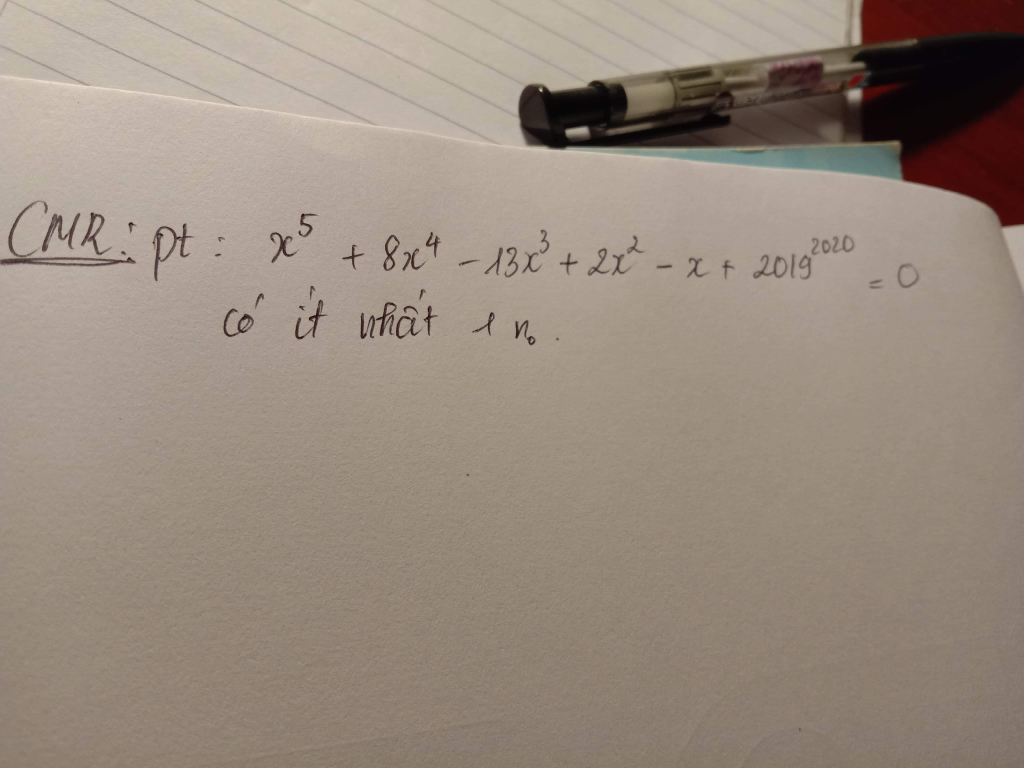 CMR: pt: x⁵ + 8x⁴ - 13x³ + 2x² - x + 2019²⁰²⁰ = 0
có ít nhất 1 n₀.